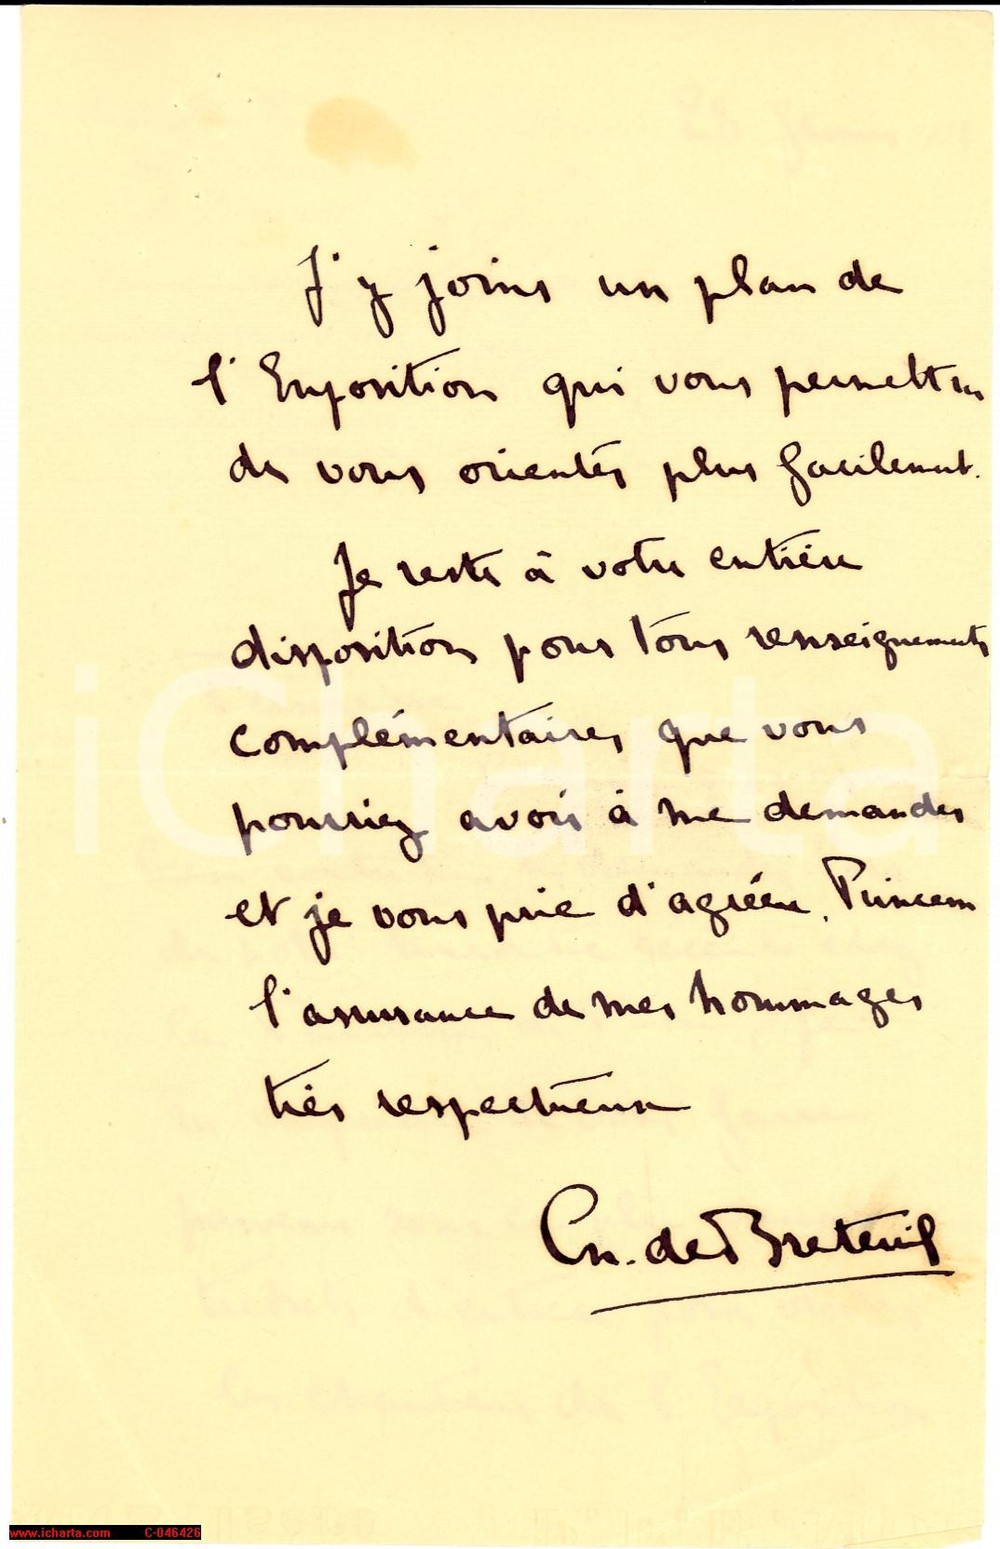 J'y joins un plan de
l'Exposition qui vous permettra
de vous orienter plus facilement.
Je reste à votre entière
disposition pour tous renseignements
complémentaires que vous
pourriez avoir à me demander
et je vous prie d'agréer, Princesse
l'assurance de mes hommages
très respectueux
Ch. de Breteuil
iCharta
www.icharta.com C-046426